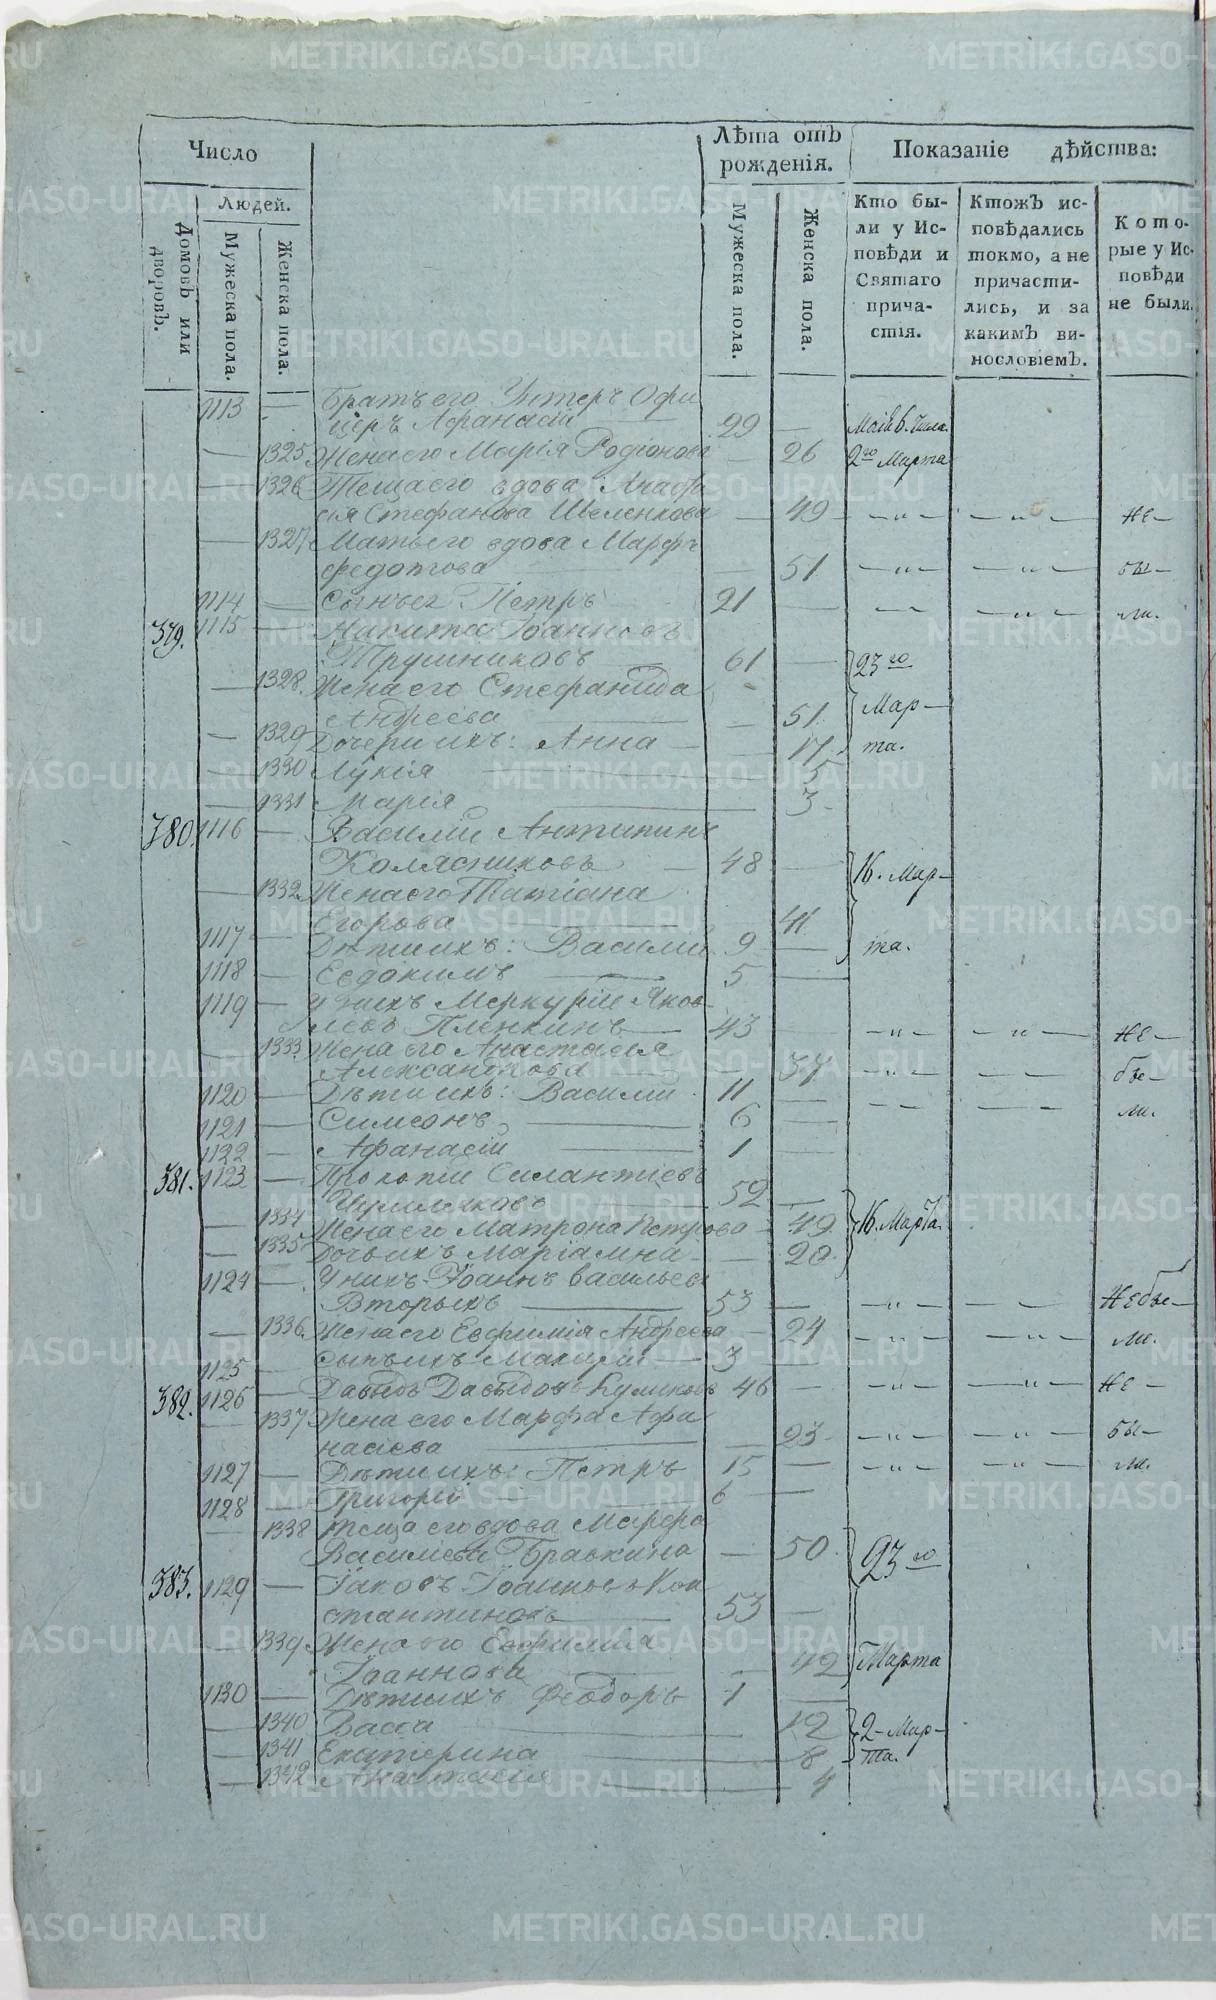 Число
Людей.
Домовъ или дворовъ.
Мужеска пола.
Женска пола.
Лѣта отъ рожденія.
Мужеска пола.
Женска пола.
Показаніе дѣйства:
Кто были у Исповѣди и Святаго причастія.
Ктожъ исповѣдались токмо, а не причастились, и за какимъ винословіемъ.
Которые у Исповѣди не были.
1113 — Братъ его Унтеръ Офи
церъ Афанасій 29 —
— 1325 Жена его Марія Родіонова — 26 2го Марта
— 1326 Теща его вдова
Стефанова — 49 — „ — — „ — не —
— 1327 Мать его вдова Марфа
Федотова — 51 — „ — — „ — бы —
1114 — Сынъ ея Петръ 21 — ли.
379. 1115 — Никита Іоанновъ
Трушниковъ 61 — 23го
— 1328. Жена его Стефанида
Андреева — 51. Мар—
— 1329 Дочери ихъ: Анна — 17. та.
— 1330 Лукія — 5
— 1331 Марія — 3
380. 1116 — Василій Антипинъ
Колясниковъ 48 — 16. Мар—
— 1332 Жена его Татіана
Егорова — 41
1117 — Дѣти ихъ: Василій 9 — та.
1118 — Евдокимъ 5 —
1119 — У нихъ Меркурій Яков
левъ Пленкинъ 43 — — „ — — „ — не —
— 1333. Жена его Анастасія
Александрова — 37 — „ — бы—
1120 — Дѣти ихъ: Василій 11 — ли.
1121 — Симеонъ 6 —
1122 — Афанасій 1 —
381. 1123 — Прокопій Силантіевъ
52 — 16. Марта.
— 1334 Жена его Матрона Петрова — 49
— 1335 Дочь ихъ Маріамна — 20.
1124 — У нихъ Іоаннъ Васильевъ
Вторыхъ 53 — — „ — Не бы—
— 1336. Жена его Евфимія Андреева — 24 — „ — — „ — ли.
1125 — Сынъ ихъ Макарій 3 —
382. 1126 — Давыдъ Давыдовъ Куликовъ 46 — — „ — — „ — не —
— 1337 Жена его Марфа Афа
насіева — 23 — „ — — „ — бы—
1127 — Дѣти ихъ: Петръ 15 — — „ — — „ — ли.
1128 — Григорій 6 —
— 1338 Теща его вдова Марфа
Васильева — 50. 23го
383. 1129 — Іаковъ Іоанновъ Кон
стантиновъ 53 —
— 1339 Жена его Евфимія
Іоаннова — 42 Марта
1130 — Дѣти ихъ Феодоръ 1 —
— 1340 Васса — 12 2— Мар—
— 1341 Екатерина — 8 та.
— 1342 Анастасія — 4
METRIKI.GASO-URAL.RU